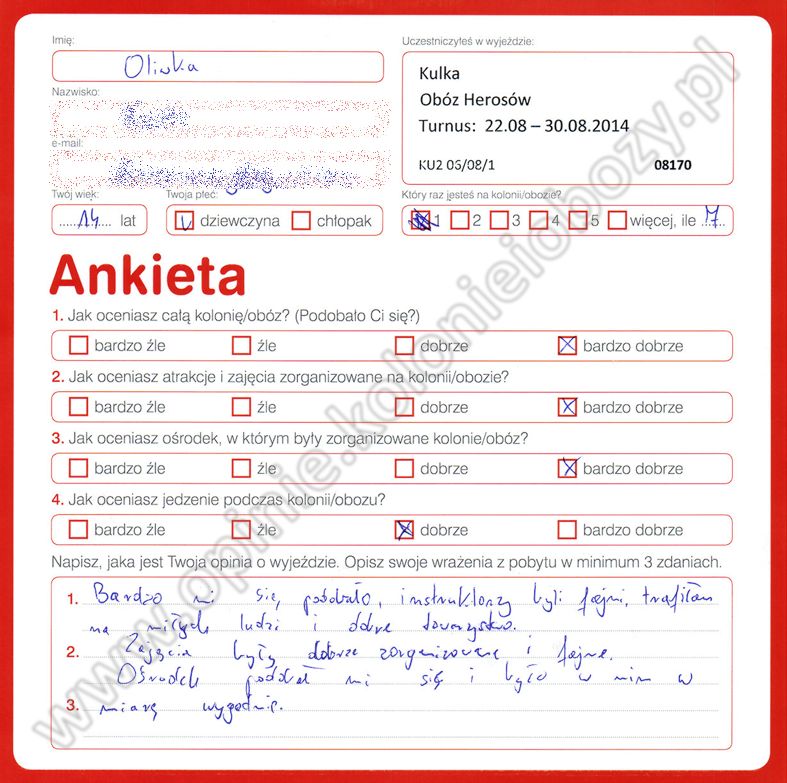 Imię:
Oliwka
Uczestniczyłeś w wyjeździe:
Kulka
Obóz Herosów
Turnus: 22.08 – 30.08.2014
KU2 06/08/1 08170
Nazwisko:
e-mail:
Twój wiek:
14 lat
Twoja płeć:
dziewczyna chłopak
Który raz jesteś na kolonii/obozie?
1 2 3 4 5 więcej, ile 7
Ankieta
1. Jak oceniasz całą kolonię/obóz? (Podobało Ci się?)
bardzo źle źle dobrze bardzo dobrze
2. Jak oceniasz atrakcje i zajęcia zorganizowane na kolonii/obozie?
bardzo źle źle dobrze bardzo dobrze
3. Jak oceniasz ośrodek, w którym były zorganizowane kolonie/obóz?
bardzo źle źle dobrze bardzo dobrze
4. Jak oceniasz jedzenie podczas kolonii/obozu?
bardzo źle źle dobrze bardzo dobrze
Napisz, jaka jest Twoja opinia o wyjeździe. Opisz swoje wrażenia z pobytu w minimum 3 zdaniach.
1. Bardzo mi się podobało, instruktorzy byli fajni, trafiłam
na miłych ludzi i dobre towarzystwo.
2. Zajęcia były dobrze zorganizowane i fajne.
Ośrodek podobał mi się i było w nim w
3. miarę wygodnie.
www.opinie.kolonieiobozy.pl